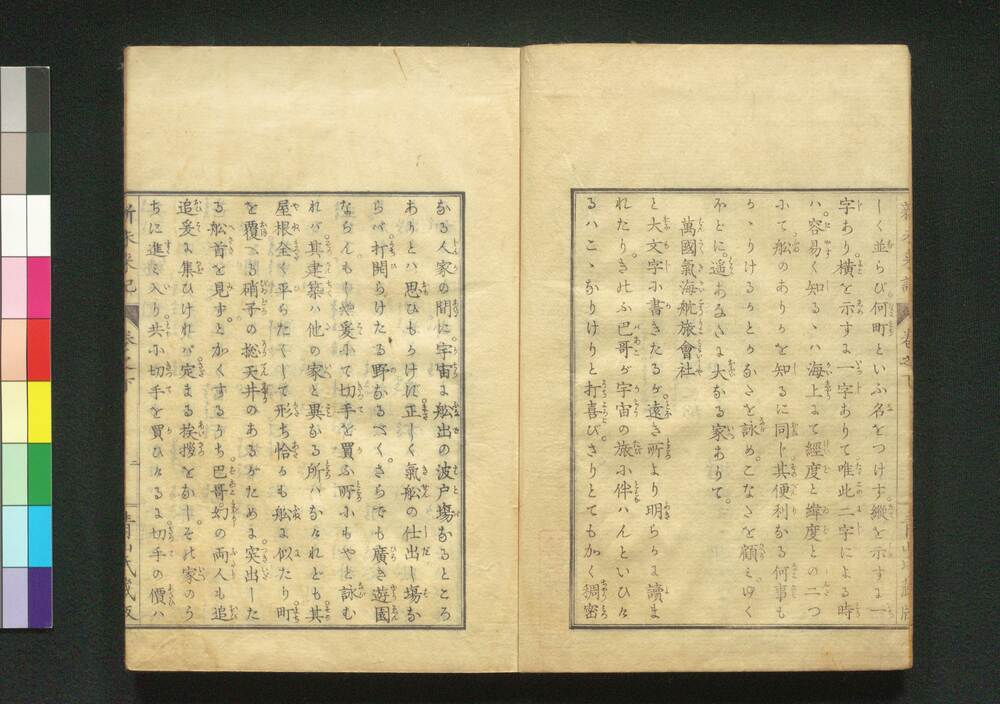 しく並らび何町といふ名をつけす縱を示すに一
字あり横を示すに一字ありて唯此二字による時
ハ容易く知るヽハ海上にて經度と緯度との二つ
にて舩のありかを知るに同じ其便利なる何事も
かヽりけるかとかなたを詠めこなたを顧ミゆく
ほどに遥あなたに大なる家ありて
萬國氣海航旅會社
と大文字に書きたるが遠き所より明らかに讀ま
れたりきのふ巴哥が宇宙の旅に伴ハんといひた
るハこヽなりけりと打喜びさりとてもかく稠密
なる人家の間に宇宙に舩出の波戸塲なるところ
ありとハ思ひもうけず正しく氣舩の仕出し塲な
らバ打開らけたる野なるべくさらでも廣き遊園
ならんもしや爰にて切手を買ふ所にもやと詠む
れバ其建築ハ他の家と異なる所ハなけれども其
屋根全く平らたくして形ち恰かも舩に似たり町
を覆へる硝子の総天井のあるがために突出した
る舩首を見ずとかくするうち巴哥幻の両人も追
追爰に集ひけれバ定まる挨拶をなしその家のう
ちに進ミ入り共に切手を買ひけるに切手の價ハ
新未來記 卷之下 二 青山氏藏版